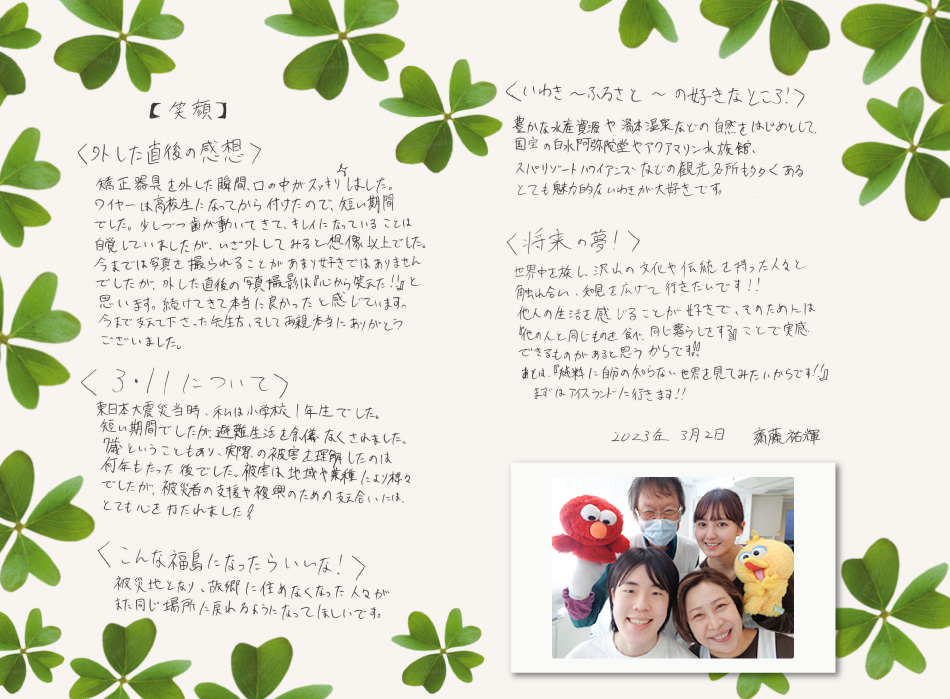 【笑顔】
〈外した直後の感想〉
矯正器具を外した瞬間、口の中がスッキリしました。
ワイヤーは高校生になってから付けたので、短い期間
でした。少しづつ歯が動いてきて、キレイになっていることは
自覚していましたが、いざ外してみると想像以上でした。
今までは写真を撮られることがあまり好きではありません
でしたが、外した直後の写真撮影は『心から笑えた!!』と
思います。続けてきて本当に良かったと感じています。
今まで支えて下さった先生方、そして両親本当にありがとう
ございました。
〈3・11について〉
東日本大震災当時、私は小学校1年生でした。
短い期間でしたが、避難生活を余儀なくされました。
7歳ということもあり、実際の被害を理解したのは
何年もたった後でした。被害は地域や業種により様々
でしたが、被災者の支援や復興のための支え合いには、
とても心を打たれました!
〈こんな福島になったらいいな!〉
被災地となり、故郷に住めなくなった人々が
また同じ場所に戻れるようになってほしいです。
〈いわき〜ふるさと〜の好きなところ!〉
豊かな水産資源や湯本温泉などの自然をはじめとして、
国宝の白水阿弥陀堂やアクアマリン水族館、
スパリゾートハワイアンズなどの観光名所も多くある
とても魅力的ないわきが大好きです。
〈将来の夢!〉
世界中を旅し、沢山の文化や伝統を持った人々と
触れ合い、知見を広げて行きたいです!!
他人の生活を感じることが好きで、そのためには
『他の人と同じものを食べ、同じ暮らしをする』ことで実感
できるものがあると思うからです!!
あとは、『純粋に自分の知らない世界を見てみたいからです!!』
まずはアイスランドに行きます!!
2023年 3月2日 斎藤祐輝